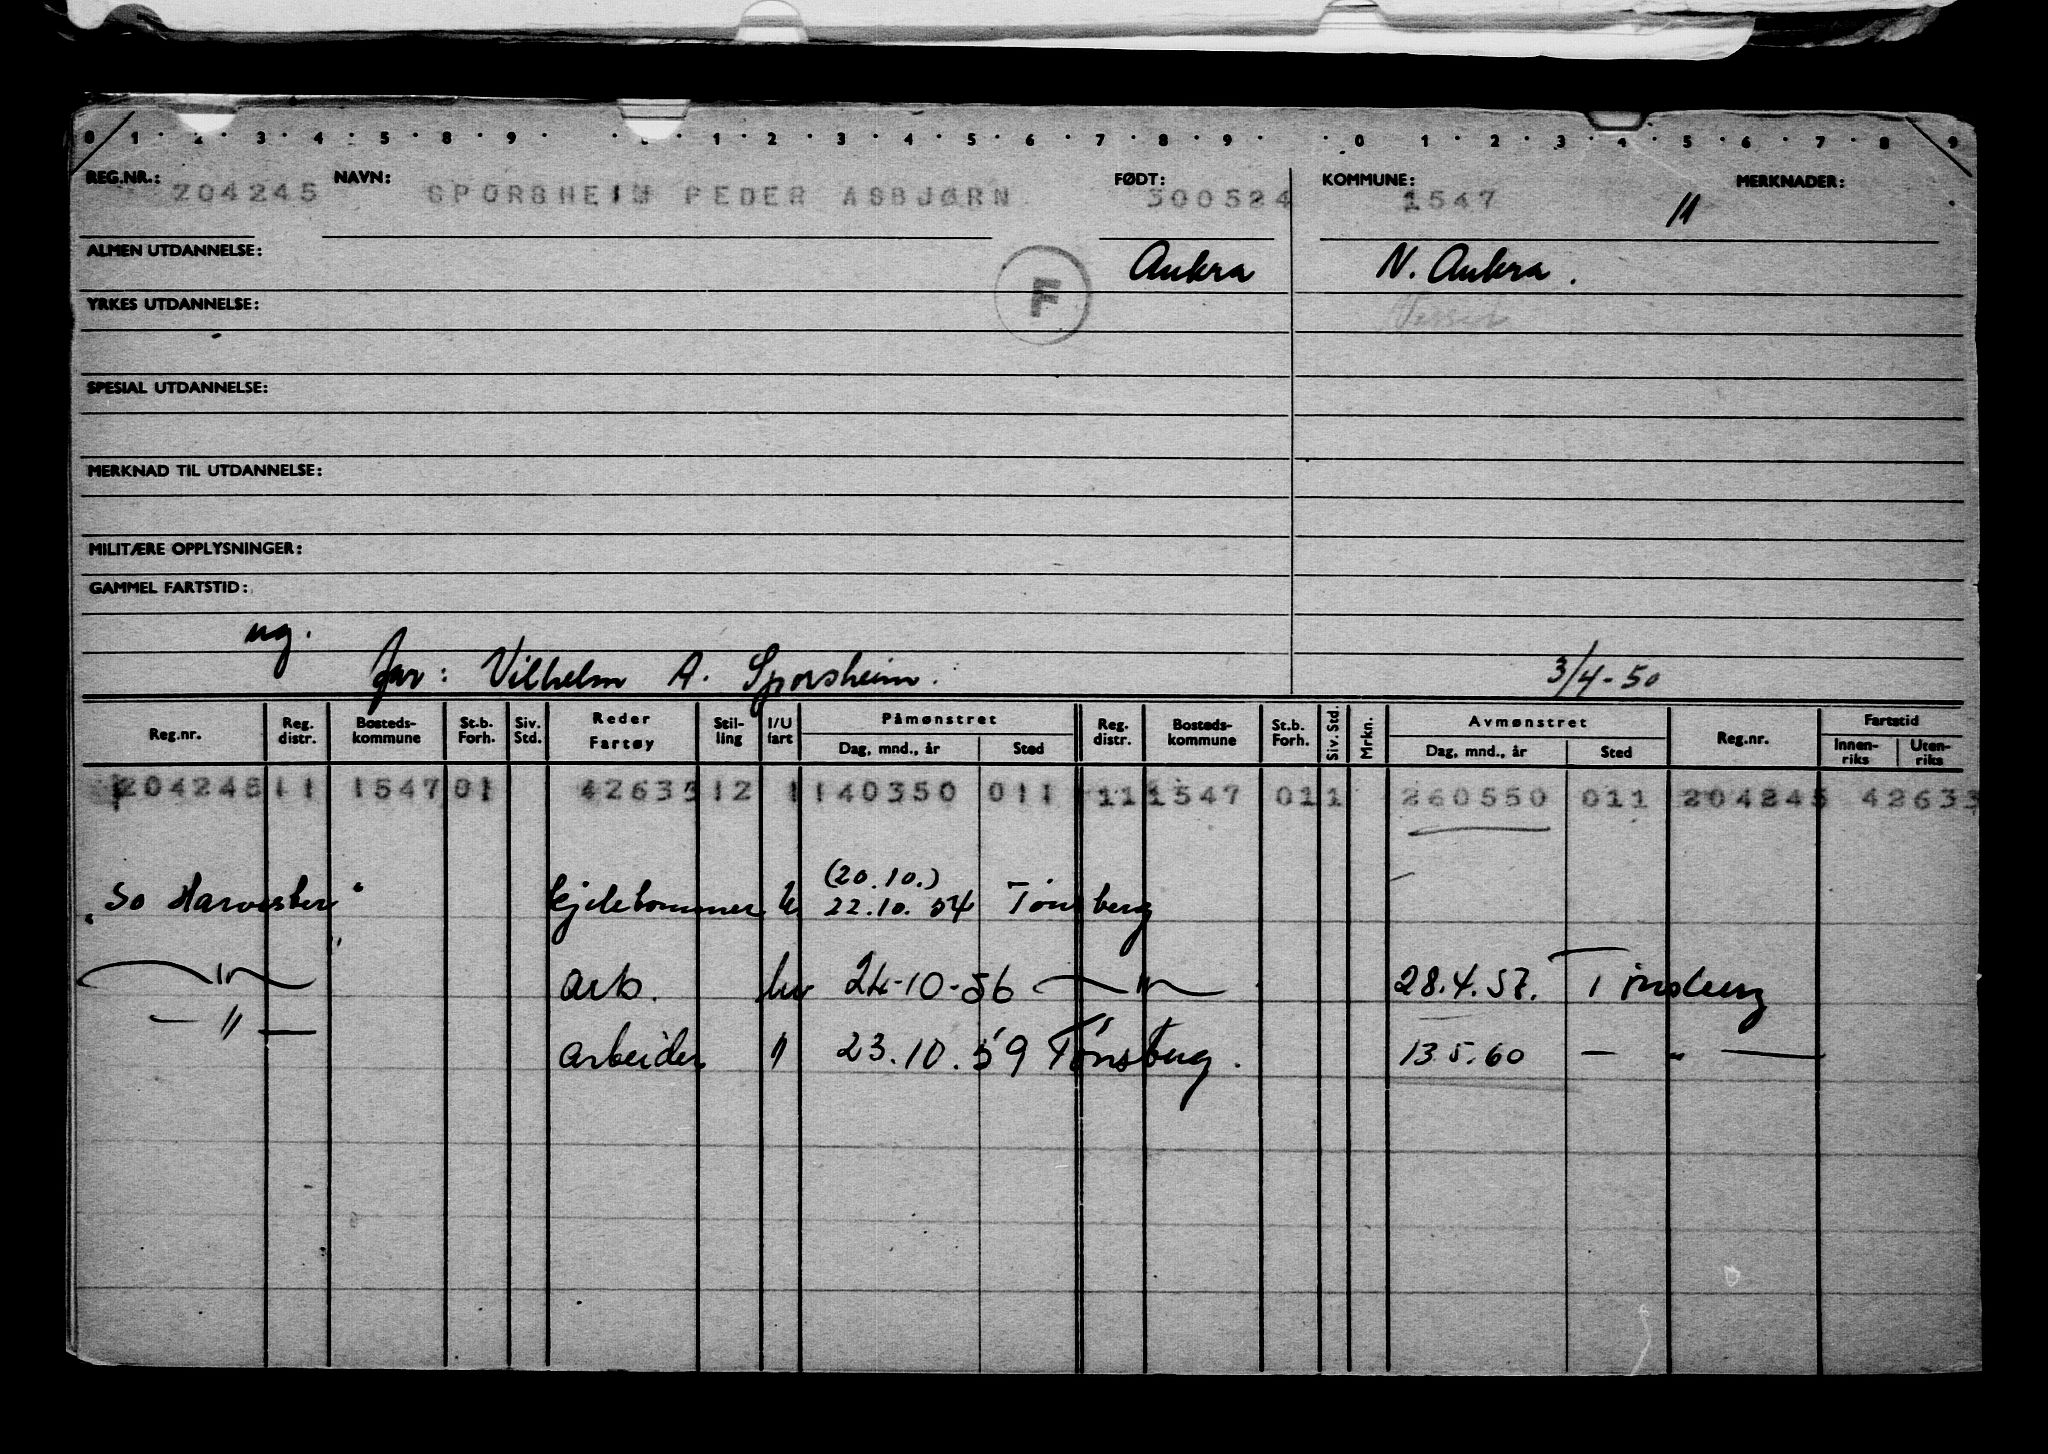 0 1 2 3 4 5 8 9 1 2 3 4 5 6 7 8 9 0 1 2 3 4 5 6 7 8 9
REG.NR.: 204245 NAVN: SPORSHEIM PEDER ASBJØRN FØDT: 300524 KOMMUNE: 1547 MERKNADER:
11
ALMEN UTDANNELSE: Aukra N. Aukra.
F
YRKES UTDANNELSE:
SPESIAL UTDANNELSE:
MERKNAD TIL UTDANNELSE:
MILITÆRE OPPLYSNINGER:
GAMMEL FARTSTID:
ug.
far: Vilhelm A. Sporsheim. 3/4-50
Reg.nr. Reg. distr. Bosteds-kommune St.b. Forh. Siv. Std. Reder Fartøy Stil-ling I/U fart Påmønstret Dag, mnd., år Sted Reg. distr. Bosteds-kommune St.b. Forh. Siv. Std. Mrkn. Avmønstret Dag, mnd., år Sted Reg.nr. Fartstid Innen-riks Uten-riks
204245 11 1547 01 42633 12 1 140350 011 11 1547 01 1 260550 011 204245 42633
(20.10.)
"So Harvester" 22.10.54 Tønsberg
—"— arb. hv 24-10-56 —"— 28.4.57. Tønsberg
—"— arbeider " 23.10.59 Tønsberg. 13.5.60 — " —